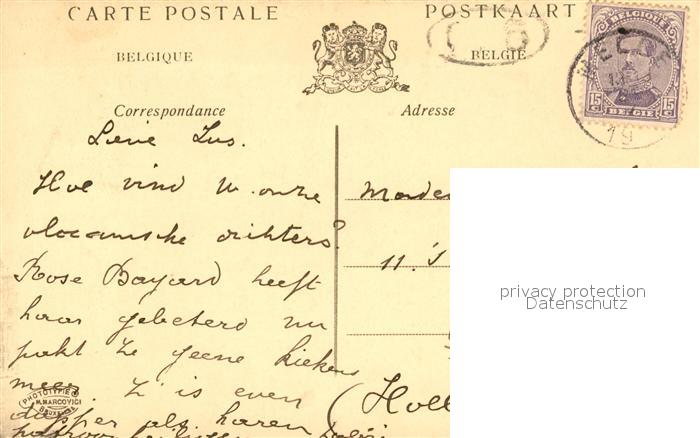 CARTE POSTALE
POSTKAART
BELGIQUE
BELGIË
BELGIQUE
15c 15c
BELGIË
19
Correspondance
Adresse
Lieve Zus.
Hoe vind U onze
vlaamsche dichters?
Rose Bayard heeft
haar gebeterd nu
pakt ze geene kiekens
meer. Z' is even
dapper als haren
Made
11.
(Holl
privacy protection
Datenschutz
PHOTOTYPIE
M.MARCOVICI
BRUXELLES